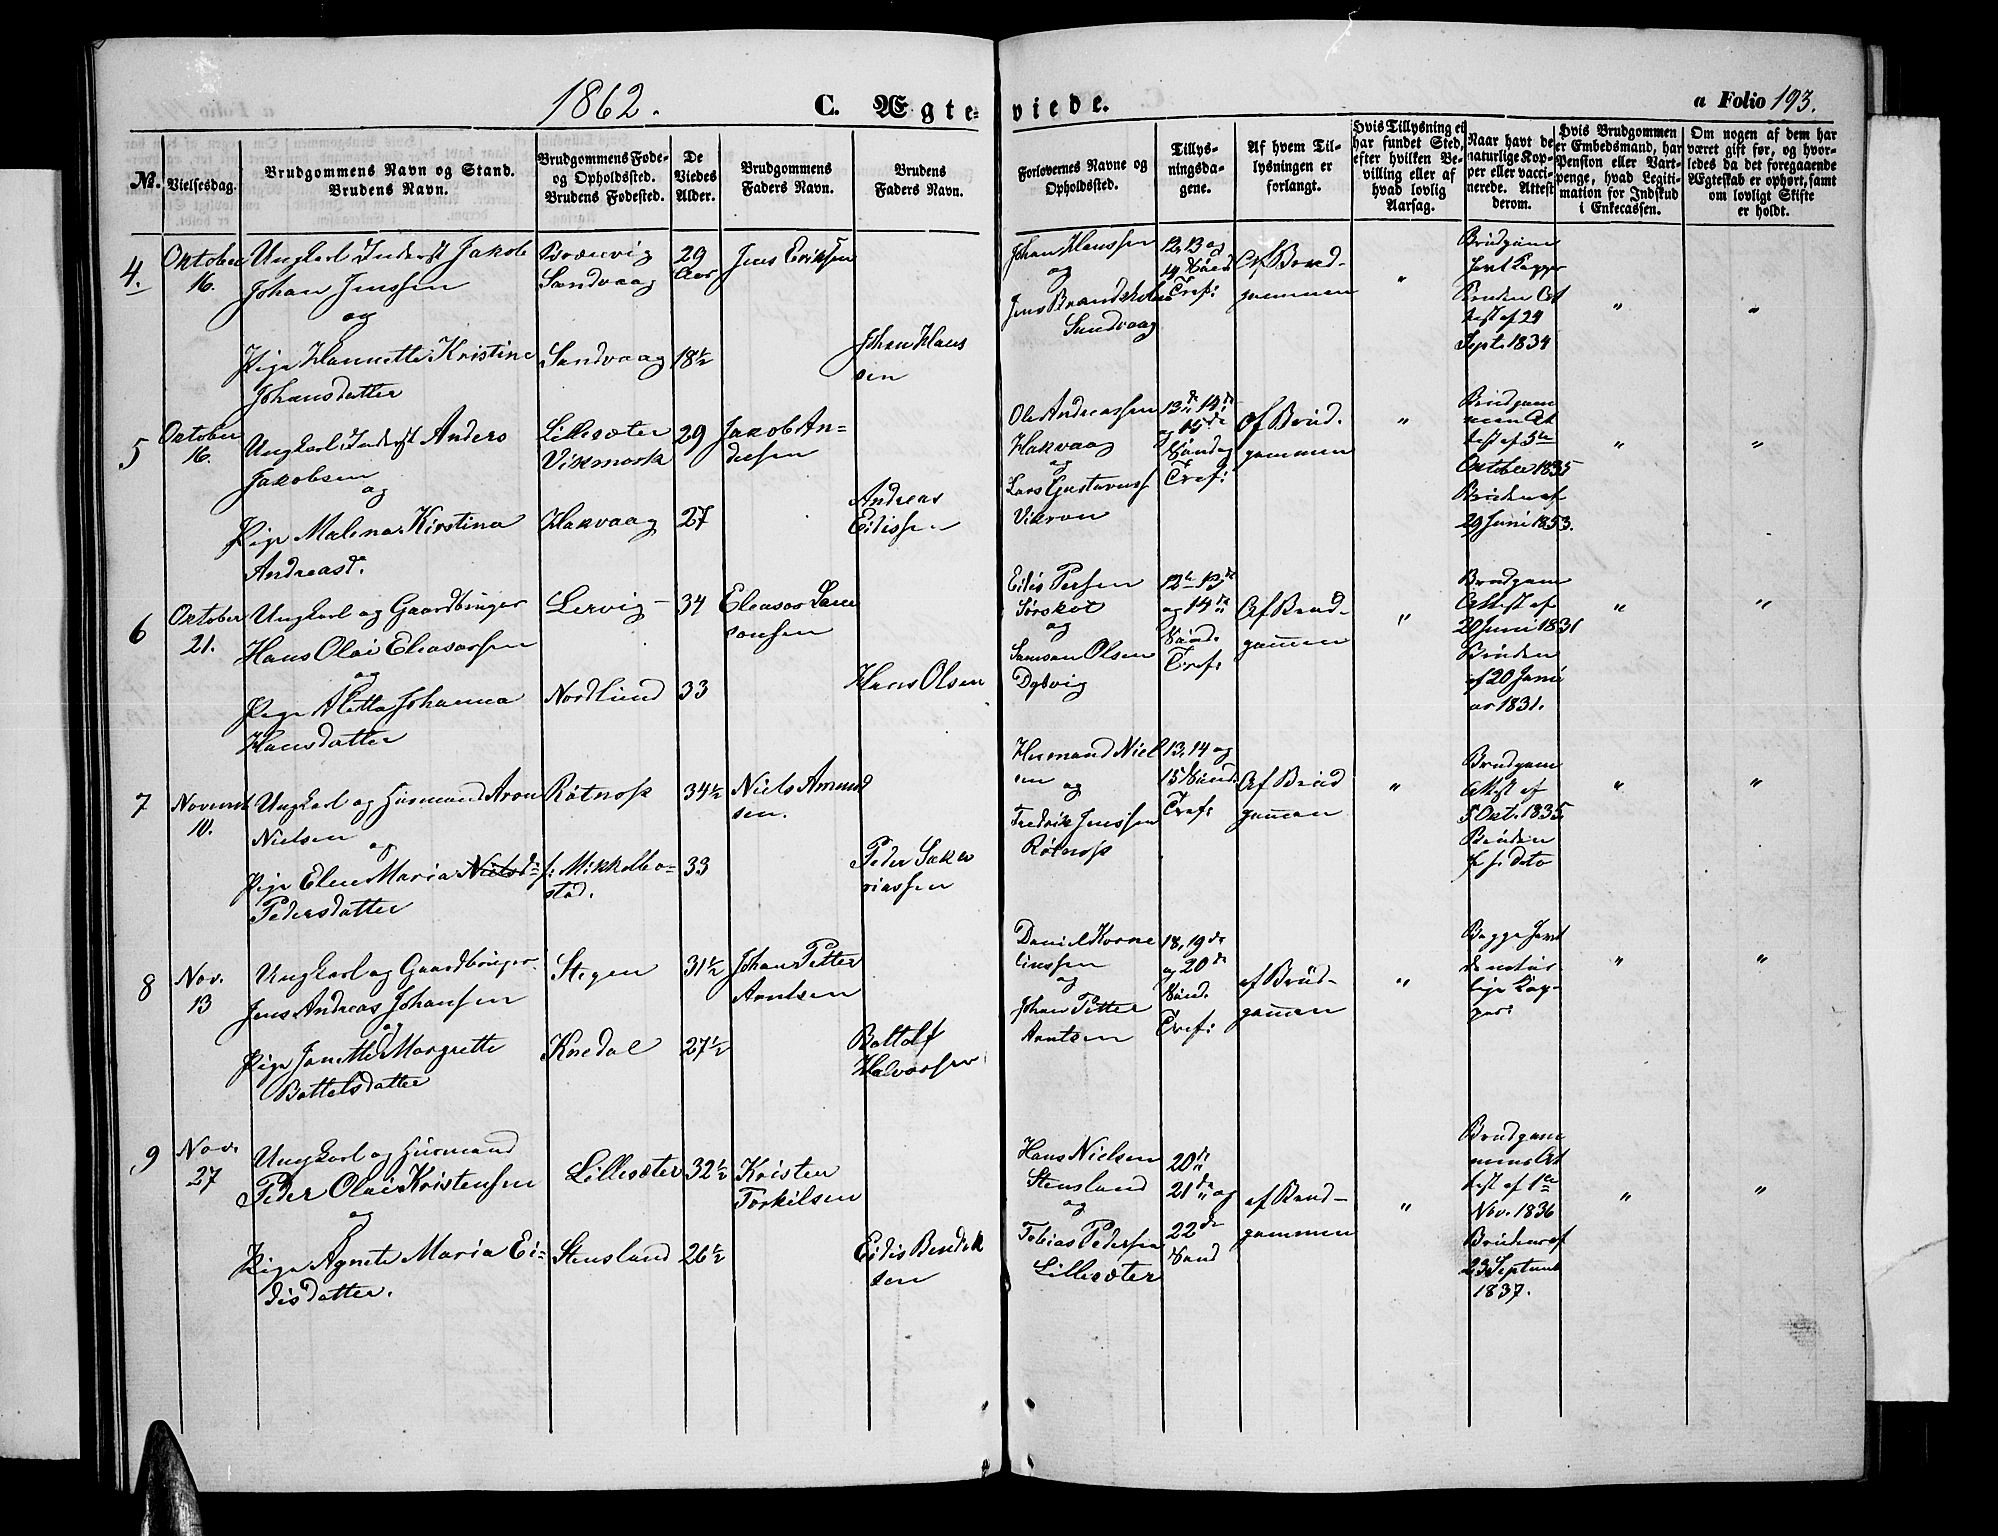 1862. C. Ægteviede. a Folio 193.
No.
Vielsesdag.
Brudgommens Navn og Stand.
Brudens Navn.
Brudgommens Føde-
og Opholdssted.
Brudens Fødested.
De
Viedes
Alder.
Brudgommens
Faders Navn.
Brudens
Faders Navn.
Forlovernes Navne og
Opholdssted.
Tillys-
ningsda-
gene.
Af hvem Til-
lysningen er
forlangt.
Hvis Tillysning ei
har fundet Sted,
efter hvilken Be-
villing eller af
hvad lovlig
Aarsag.
Naar havt de
naturlige Kop-
per eller vacci-
nerede. Attest
derom.
Hvis Brudgommen
er Embedsmand, har
Pension eller Vart-
penge, hvad Legiti-
mation for Indskud
i Enkecassen.
Om nogen af dem har
været gift før, og hvor-
ledes da det foregaaende
Ægteskab er ophørt, samt
om lovligt Skifte
er holdt.
4.
Oktober
16.
Ungkarl Inderst Jakob
Johan Jenssen
og
Pige Hannette Kristine
Johansdatter
Sandvaag
Sandvaag
29
Aar
18½
Jens Eriksen
Johan Hans
sen
Johan Hanssen
og
Sandvaag
12, 13 og
14 Sønd.
Tref:
Af Brud-
gommen
"
Brudgom
havt Kopper
Bruden At
test af 24
Sept. 1834
"
"
5
Oktober
16.
Ungkarl Inderst Anders
Jakobsen
og
Pige Malena Kirstina
Andreasd.
Lillesæter
Vikmark
Hakvaag
29
27
Jakob An-
dersen
Andreas
Eidissen
Ole Andreassen
Hakvaag
og
Lars Gustavuss
Vikran
13de 14de
og 15de
Søndag
Tref:
Af Brud.
gommen
"
Brudgom
mens At
test af 3die
Oktober 1835
Bruden af
29 Juni 1853.
"
"
6
Oktober
21.
Ungkarl og Gaardbruger
Hans Olai Eleasarsen
og
Pige Aletta Johanna
Hansdatter
Lervig
Nordlund
34
33
Eleasar Sam
sonsen
Hans Olsen
Eidis Persen
Sørskot
og
Samson Olsen
Dybvig
12te 13de
og 14de
Sønd.
Tref:
Af Brud-
gommen
"
Brudgom
Attest af
20 Juni 1831
Bruden
af 20 Juni
1831.
"
"
7
Novemb
10.
Ungkarl og Husmand Aron
Nielsen
og
Pige Elen Maria Nielsd:
Pedersdatter
Røtnæs
f: Mikkelbo-
stad.
34½
33
Niels Amund
sen.
Peder Saka
riassen
Hermand Niel
sen
og
Fredrik Jenssen
Røtnæs
13, 14 og
15 Sønd.
Tref:
Af Brud
gommen
"
Brudgom
Attest af
5 Okt. 1835.
Bruden
dato
"
"
8
Nov.
13
Ungkarl og Gaardbruger
Jens Andreas Johansen
og
Pige Janetta Margrette
Bottelsdatter
Stegen
Knedal
31½
27½
Johan Petter
Arntsen
Bottolf
Halvorsen
Daniel Korne
liussen
og
Johan Petter
Arntsen
18, 19de
og 20de
Sønd.
Tref:
af Brud-
gommen
"
Begge havt
de natur
lige Kop-
per:
"
"
9
Nov.
27
Ungkarl og Husmand
Peder Olai Kristensen
og
Pige Agnete Maria Ei-
disdatter.
Lillesæter
Stensland
32½
26½
Kristen
Torkilsen
Eidis Bendik
sen
Hans Nielsen
Stensland
og
Tobias Pedersen
Lillesæter
20de
21de og
22de
Sønd
af Brud-
gommen
"
Brudgom
mens At
test af 1te
Nov. 1836
Bruden af
23 Septemb
1837.
"
"